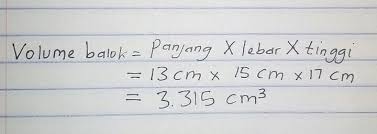 Volume balok = Panjang X lebar X tinggi
= 13 cm x 15 cm x 17 cm
= 3.315 cm³